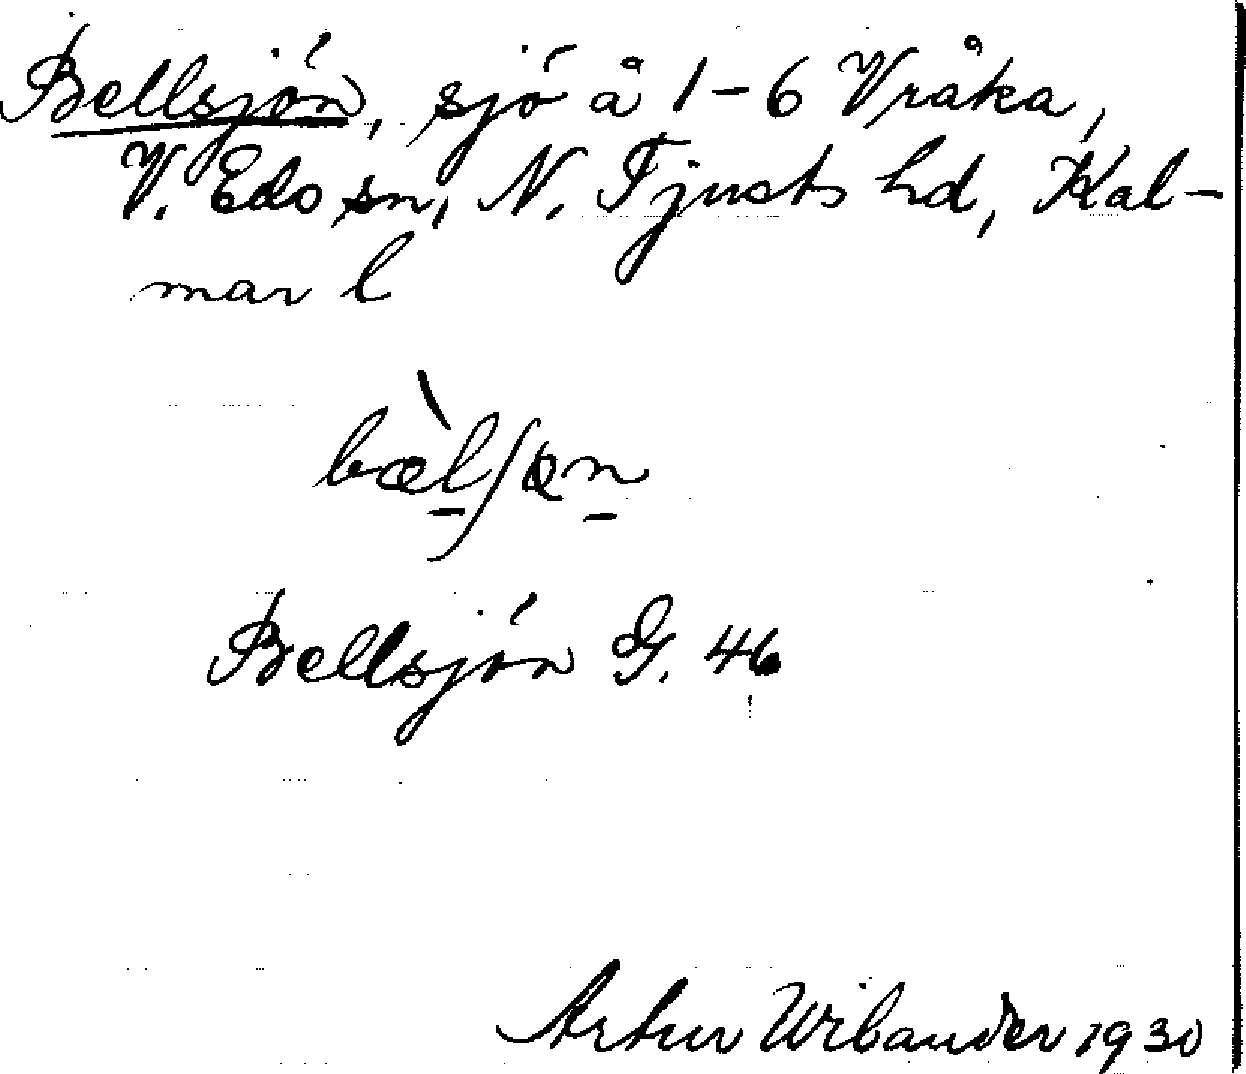 Bellsjön, sjö å 1-6 Vråka,
V. Eds sn, N. Tjusts hd, Kal-
mar l
bæ̀lʃɷn
Bellsjön G. 46
Artur Wibander 1930